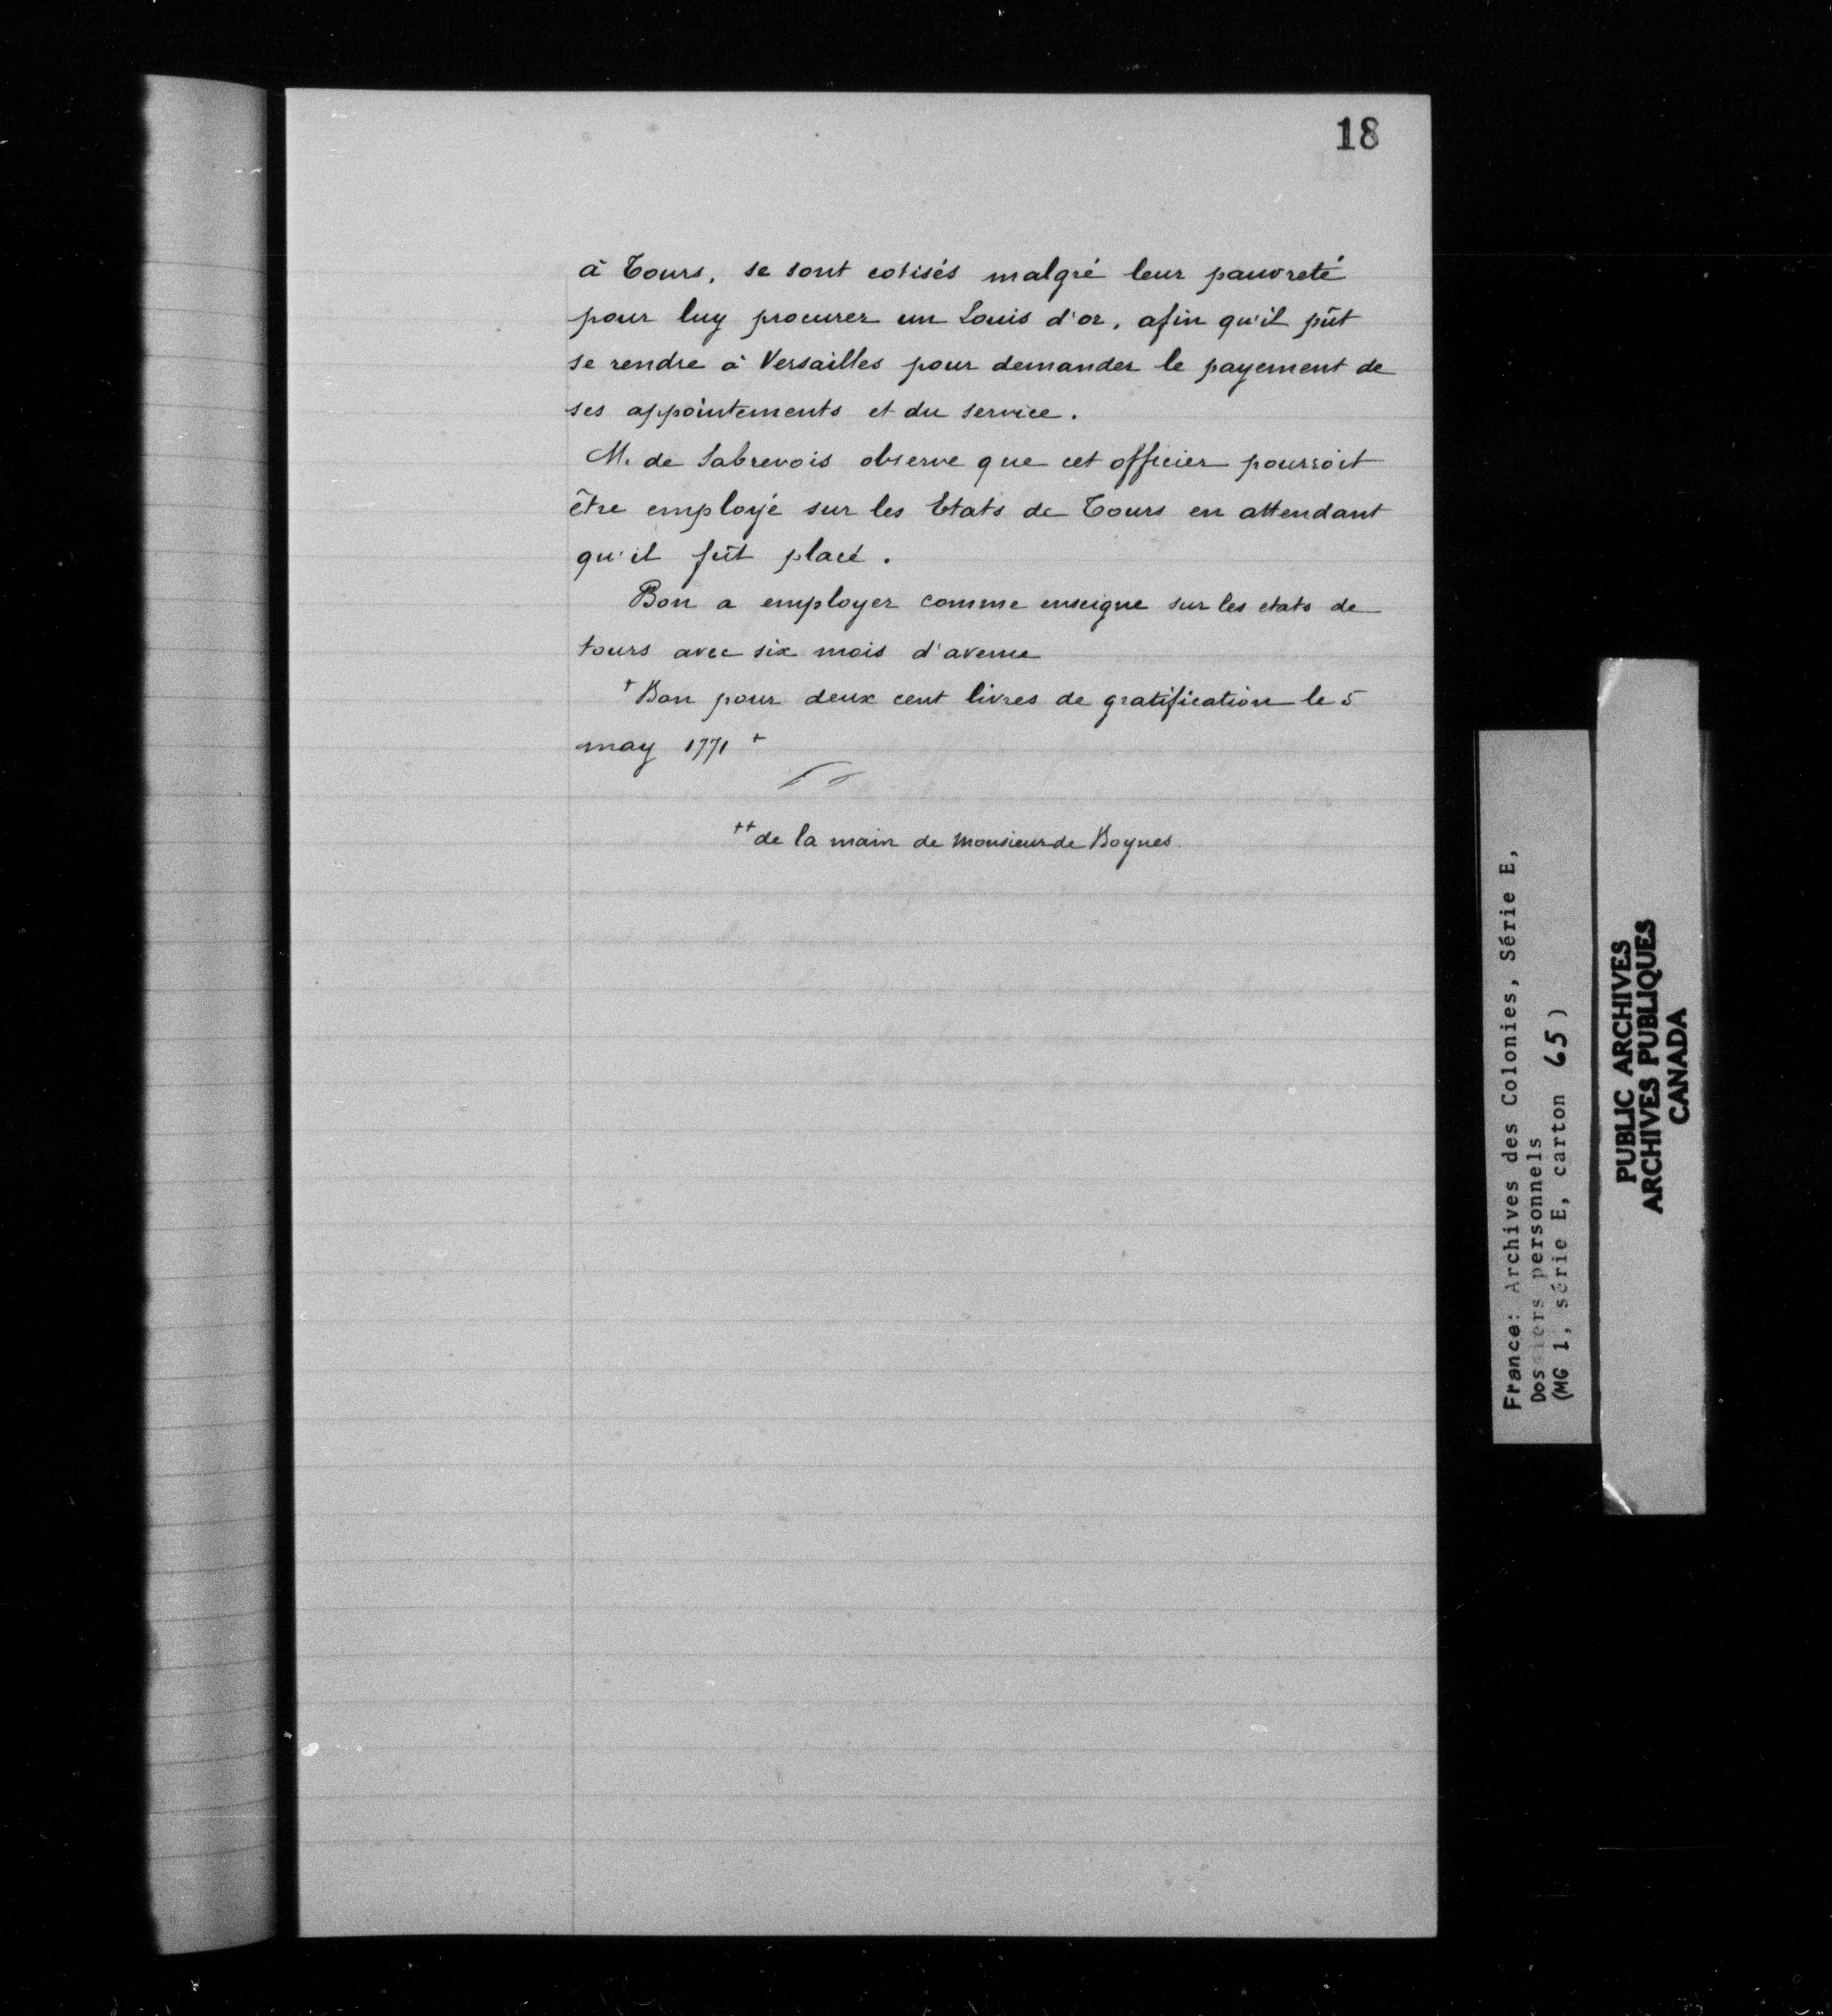 18
à Tours, se sont cotisés malgré leur pauvreté
pour luy procurer un Louis d'or, afin qu'il pût
se rendre à Versailles pour demander le payement de
ses appointements et du service.
M. de Sabrevois observe que cet officier pourroit
être employé sur les Etats de Tours en attendant
qu'il fût placé.
Bon a employer comme enseigne sur les etats de
tours avec six mois d'avence
+ Bon pour deux cent livres de gratification le 5
may 1771 +
++ de la main de Monsieur de Boynes.
France: Archives des Colonies, Série E,
Dossiers personnels
(MG 1, série E, carton 65)
PUBLIC ARCHIVES
ARCHIVES PUBLIQUES
CANADA